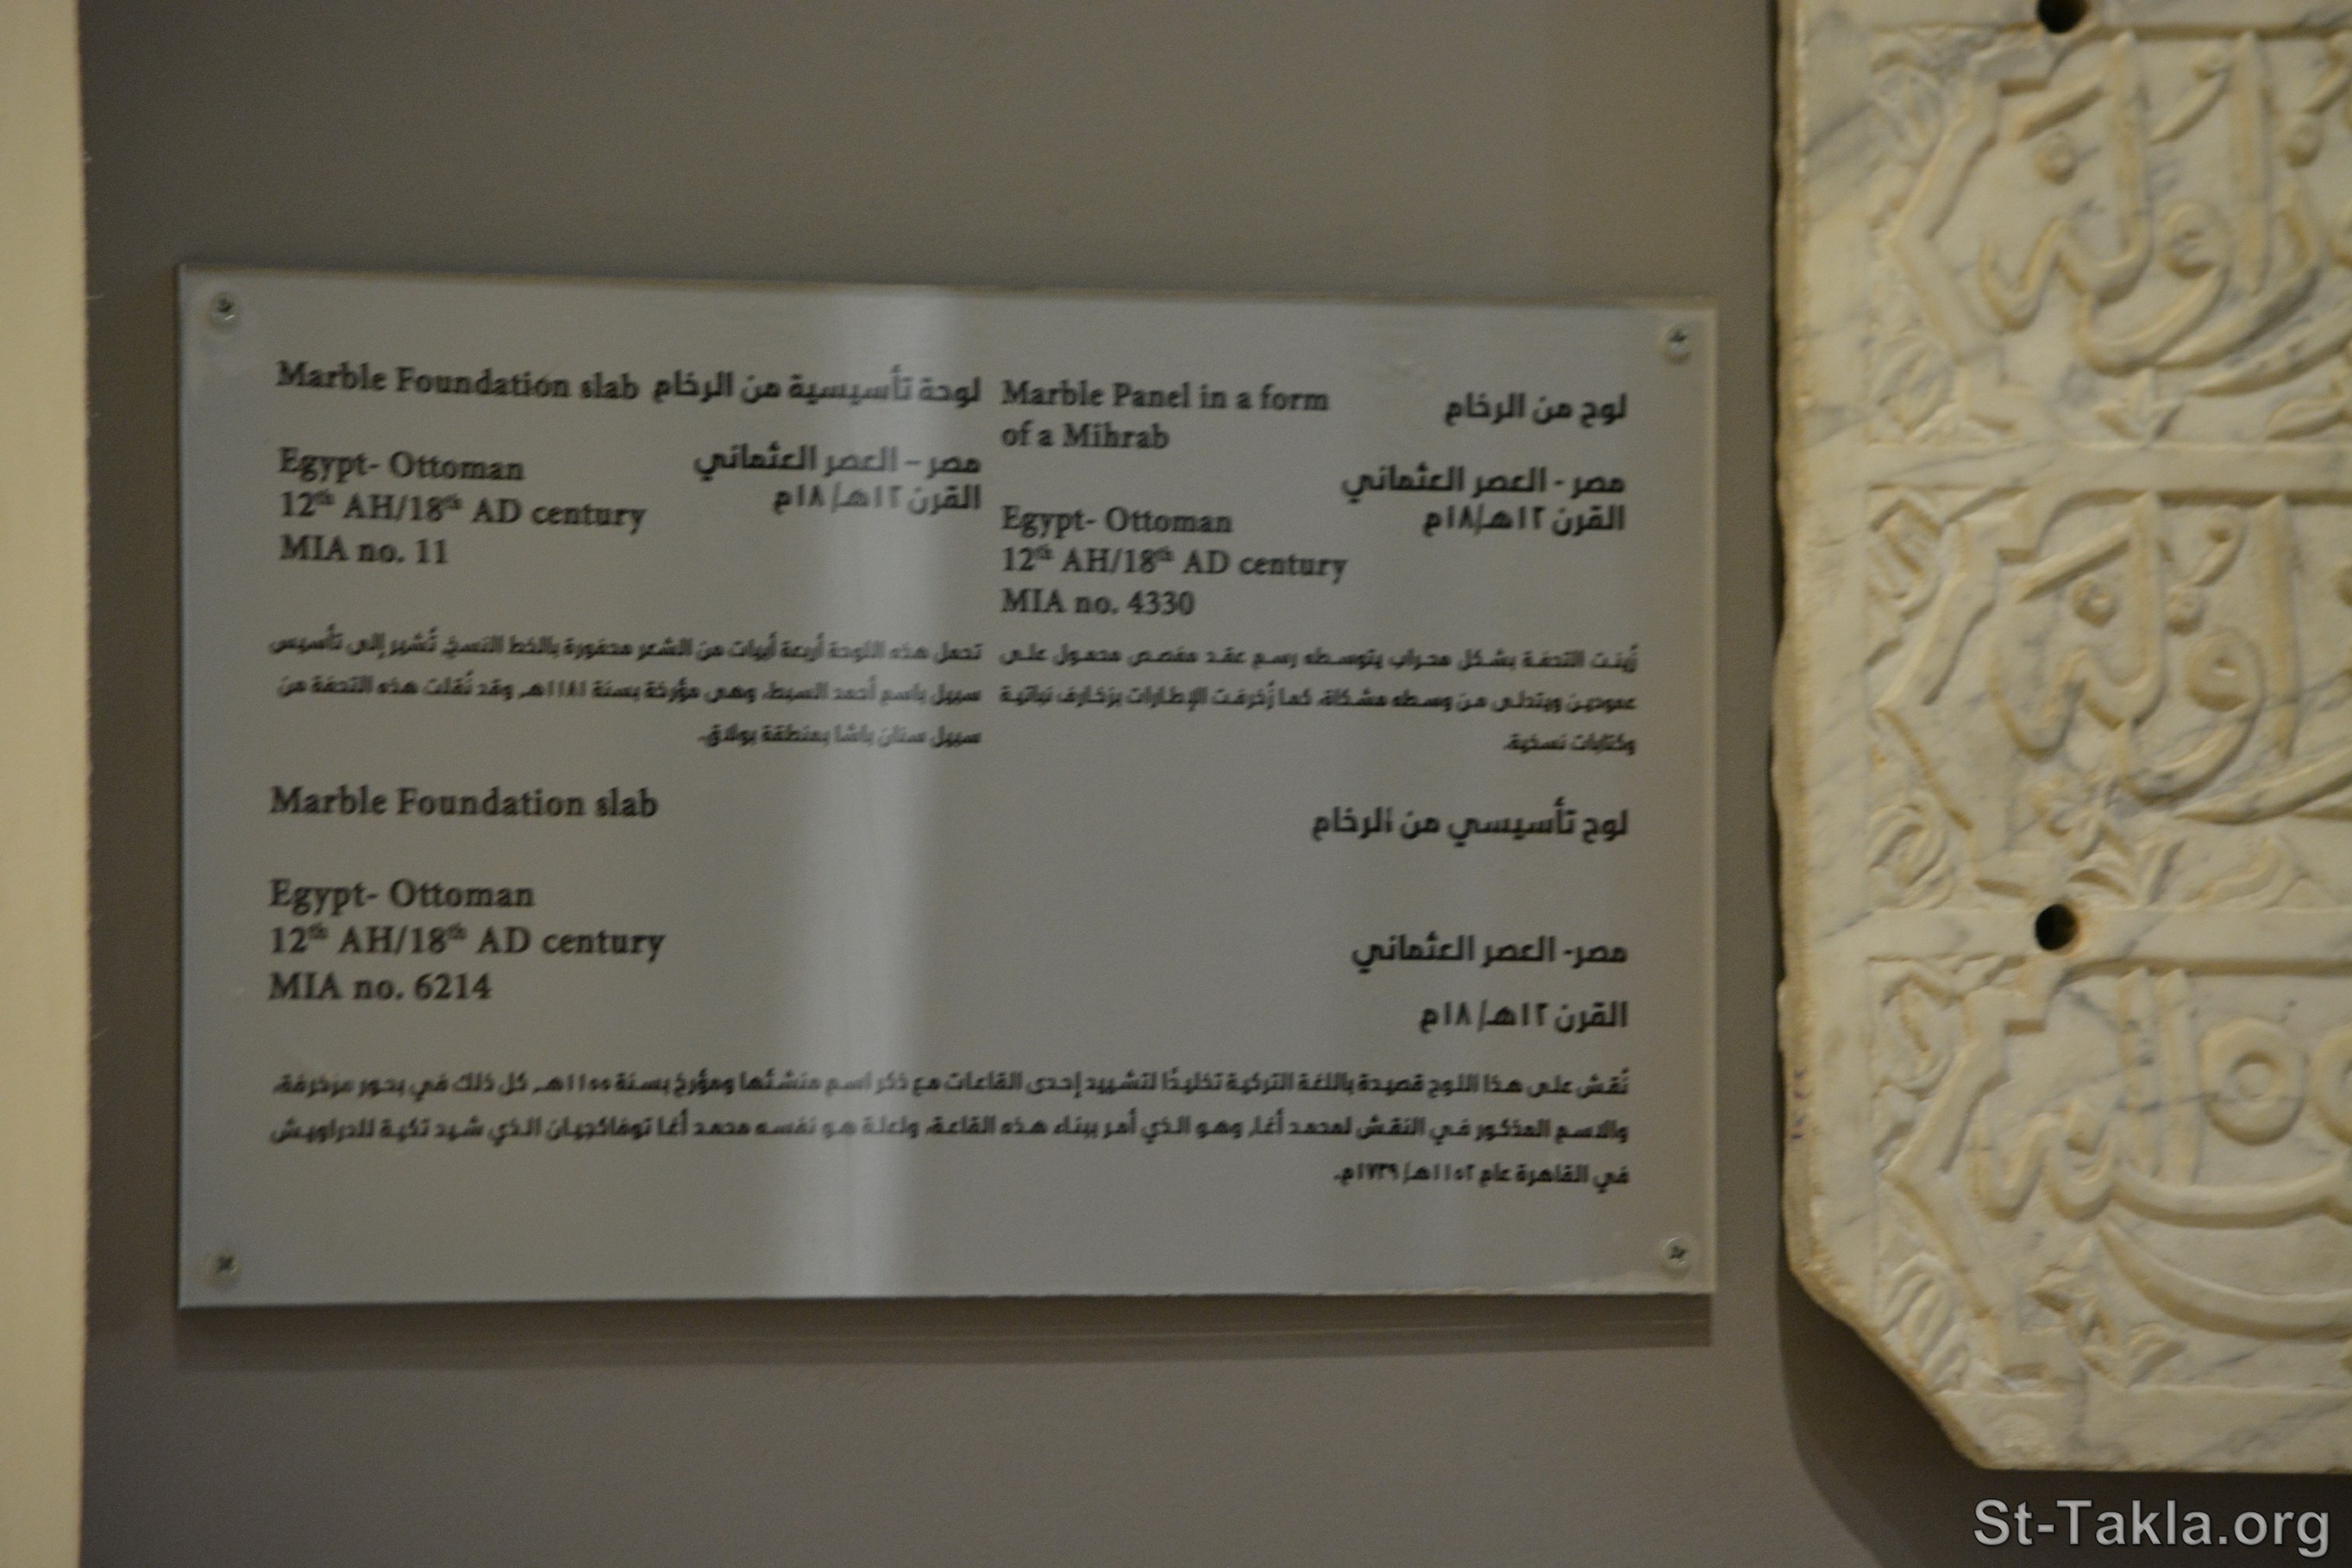 Marble Foundation slab
لوحة تأسيسية من الرخام
Egypt- Ottoman
12th AH/18th AD century
MIA no. 11
مصر – العصر العثماني
القرن ١٢هـ/ ١٨م
تحمل هذه اللوحة أربعة أبيات من الشعر محفورة بالخط النسخ، تُشير إلى تأسيس
سبيل باسم أحمد السبط، وهى مؤرخة بسنة ١١٨١هـ، وقد نُقلت هذه التحفة من
سبيل سنان باشا بمنطقة بولاق.
Marble Panel in a form
of a Mihrab
لوح من الرخام
Egypt- Ottoman
12th AH/18th AD century
MIA no. 4330
مصر - العصر العثماني
القرن ١٢هـ/١٨م
زُينت التحفة بشكل محراب يتوسطه رسم عقد مفصص محمول على
عمودين ويتدلى من وسطه مشكاة، كما زُخرفت الإطارات بزخارف نباتية
وكتابات نسخية.
Marble Foundation slab
لوح تأسيسي من الرخام
Egypt- Ottoman
12th AH/18th AD century
MIA no. 6214
مصر- العصر العثماني
القرن ١٢هـ/ ١٨م
نُقش على هذا اللوح قصيدة باللغة التركية تخليدًا لتشييد إحدى القاعات مع ذكر اسم منشئها ومؤرخ بسنة ١١٥٥هـ، كل ذلك في بحور مزخرفة،
والاسم المذكور في النقش لمحمد أغا، وهو الذي أمر ببناء هذه القاعة، ولعلة هو نفسه محمد أغا توفاكجيان الذي شيد تكية للدراويش
في القاهرة عام ١١٥٢هـ/ ١٧٣٩م.
St-Takla.org